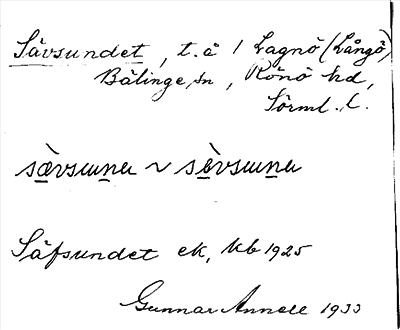 Sävsundet, t.å 1 Lagnö (Långö)
Bälinge sn, Rönö hd,
Sörml. l.
sæ̀vsuṇa ~ sèvsuṇa
Säfsundet ek, kb 1925
Gunnar Annell 1933